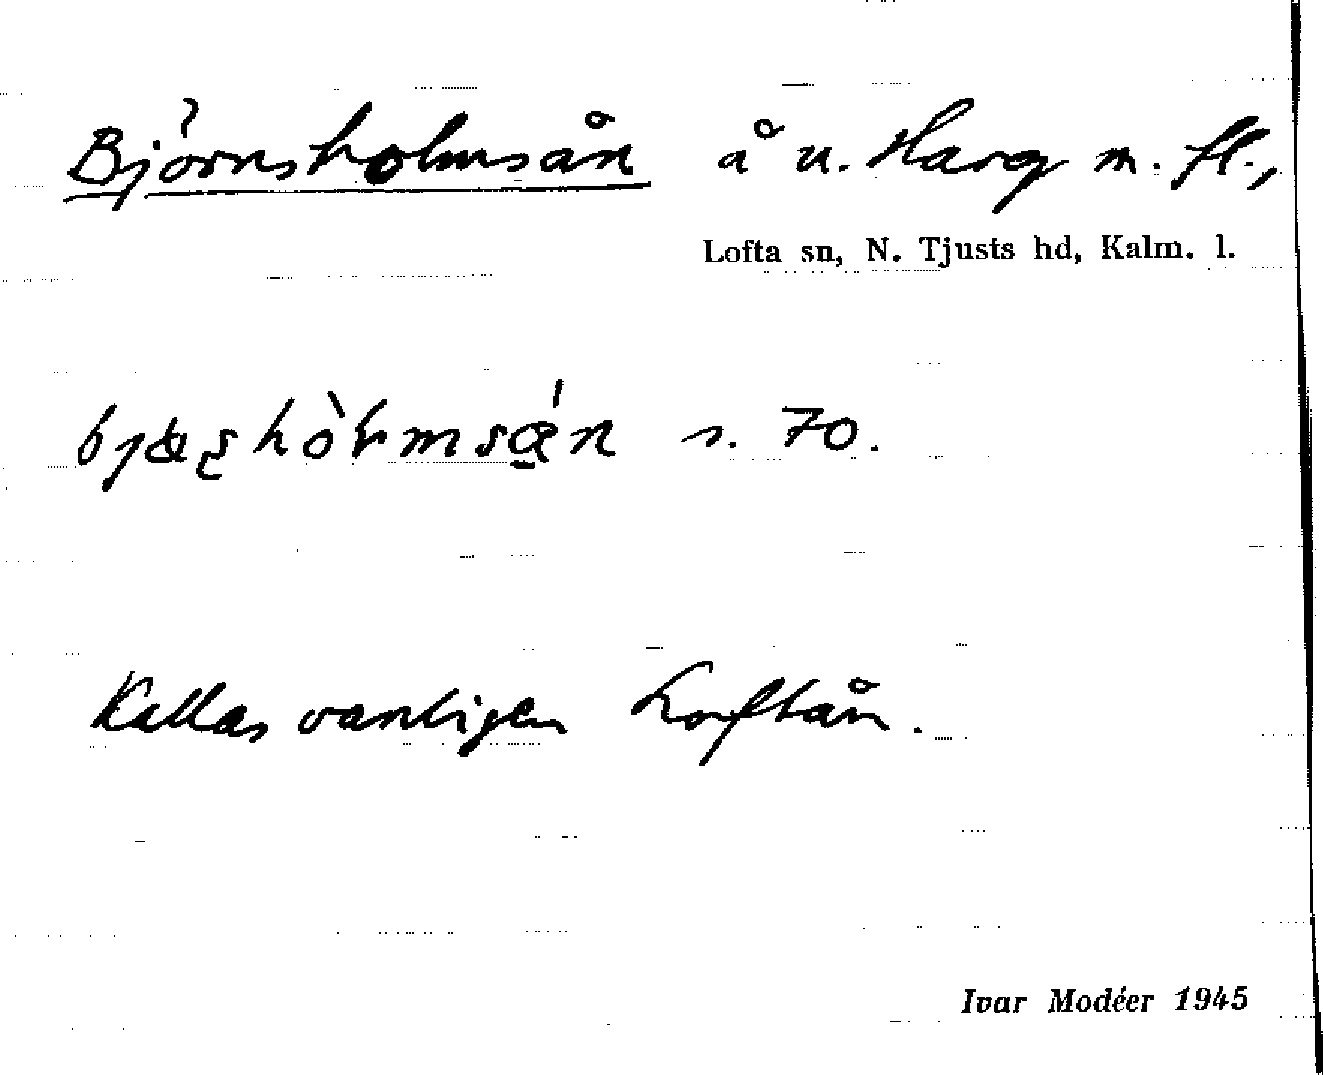 Björnsholmsån å u. Harg m. fl.,
Lofta sn, N. Tjusts hd, Kalm. l.
s. 70.
Kallas vanligen Loftån.
Ivar Modéer 1945